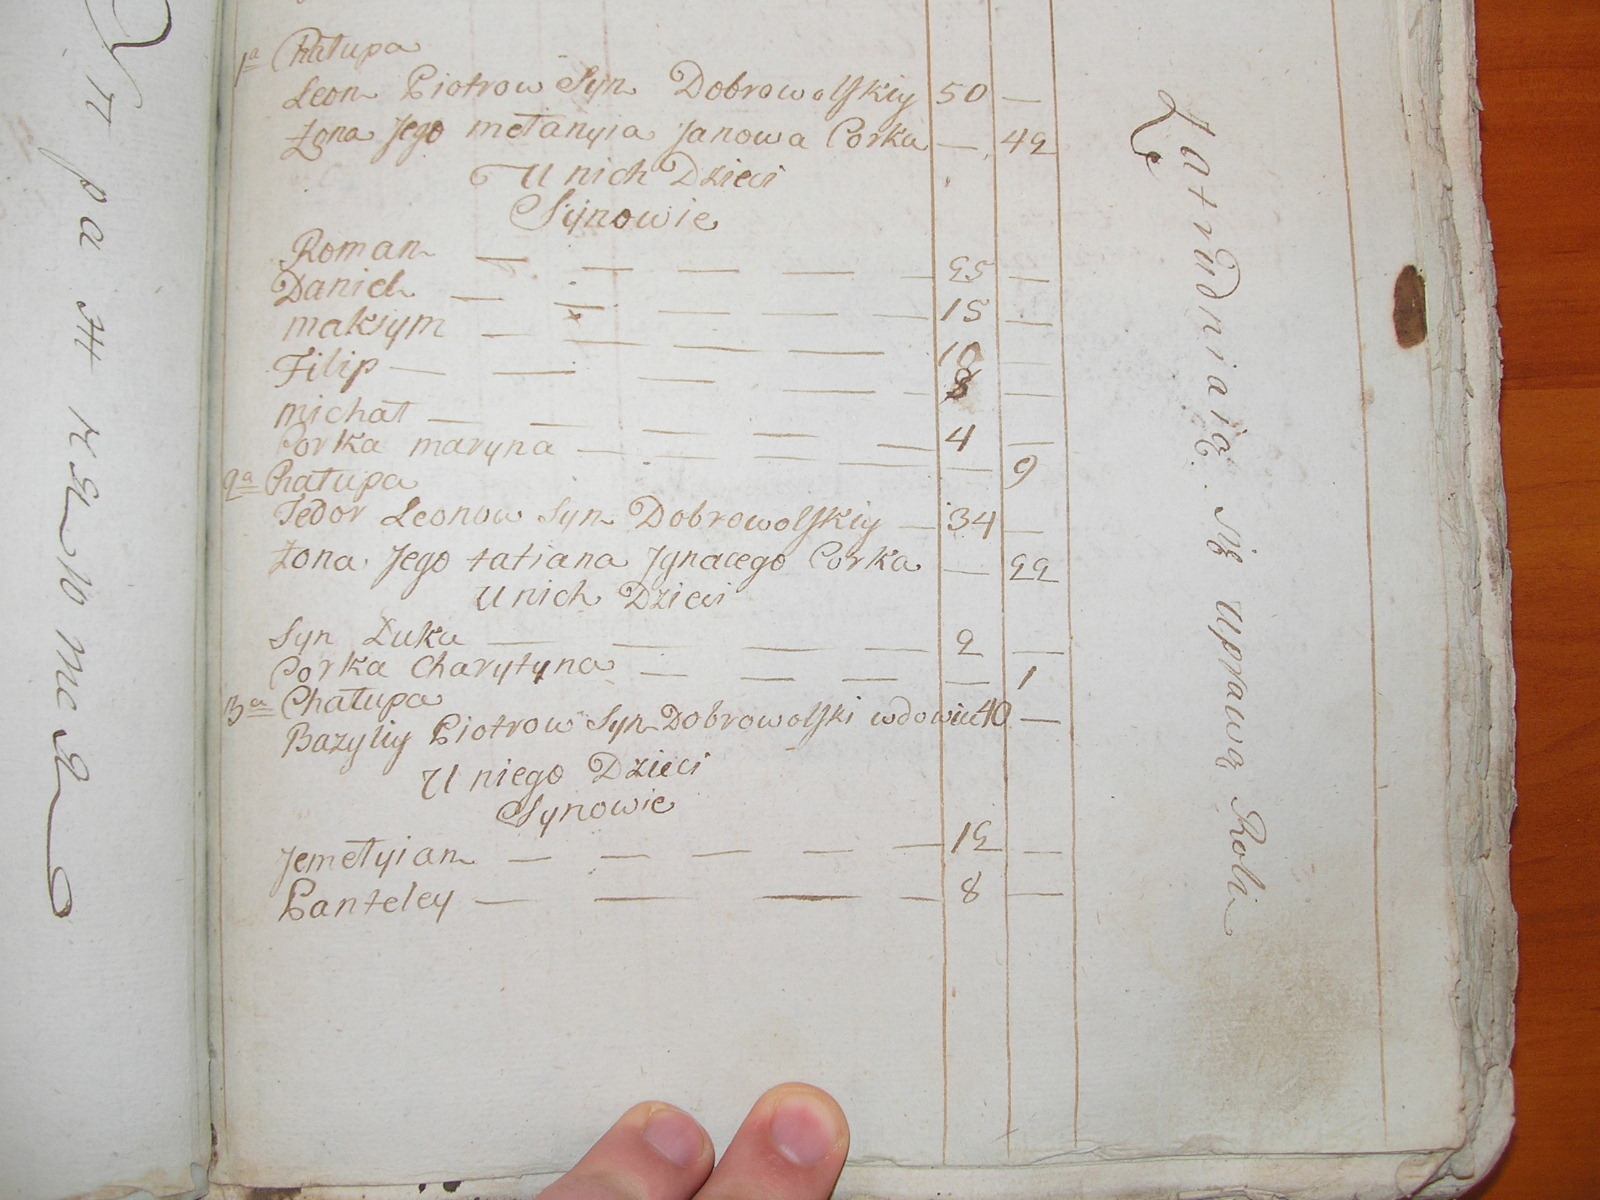 1a Chałupa
Leon Piotrow Syn Dobrowolskiy 50 —
Żona Jego mełanyia Janowa Corka — 42
U nich Dzieci
Synowie
Roman — — — — — 25 —
Daniel — — — — — 15 —
maksym — — — — 10 —
Filip — — — — — 8 —
michał — — — — — 4 —
Corka maryna — — — — — 9
2a Chałupa
Fedor Leonow Syn Dobrowolskiy — 34 —
Żona Jego tatiana Jgnacego Corka — 22
U nich Dzieci
Syn Łuka — — — — 2 —
Corka Charytyna — — — — — 1
3a Chałupa
Bazyliy Piotrow Syn Dobrowolski wdowiec 40 —
U niego Dzieci
Synowie
Jemełyian — — — — — 12 —
Panteley — — — — 8 —
Zatrudniaią się uprawą Roli